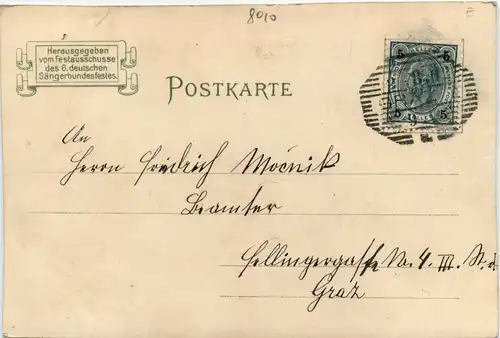 8010
Herausgegeben
vom Festausschusse
des 6. deutschen
Sängerbundesfestes.
POSTKARTE
5 5
5 5
An
Herrn Friedrich Močnik
Beamter
Hellingergasse No. 4 III. St.
Graz